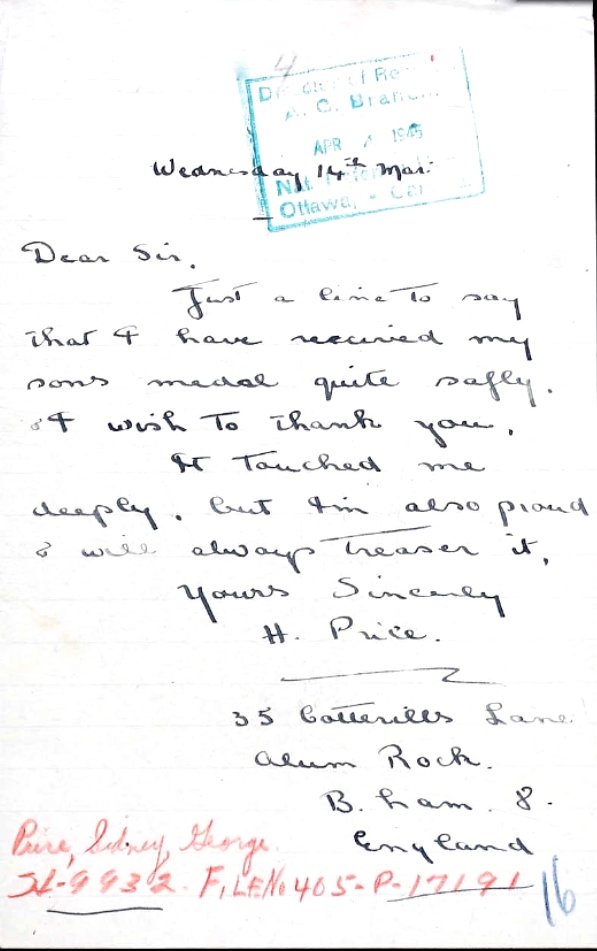 4
Director of Re
A. G. Bran
APR 1945
Wednesday, 14th Mar.
Nat
Ottawa, - Ca
Dear Sir,
Just a line to say
that I have received my
sons medal quite safly.
& I wish to thank you.
It touched me
deeply. but I'm also proud
& will always treaser it,
Yours Sincerly
H. Price.
35 Cotterills Lane
Alum Rock.
B. ham. 8.
England
Price, Sidney, George.
9932. FILE No 405-P-17191
16